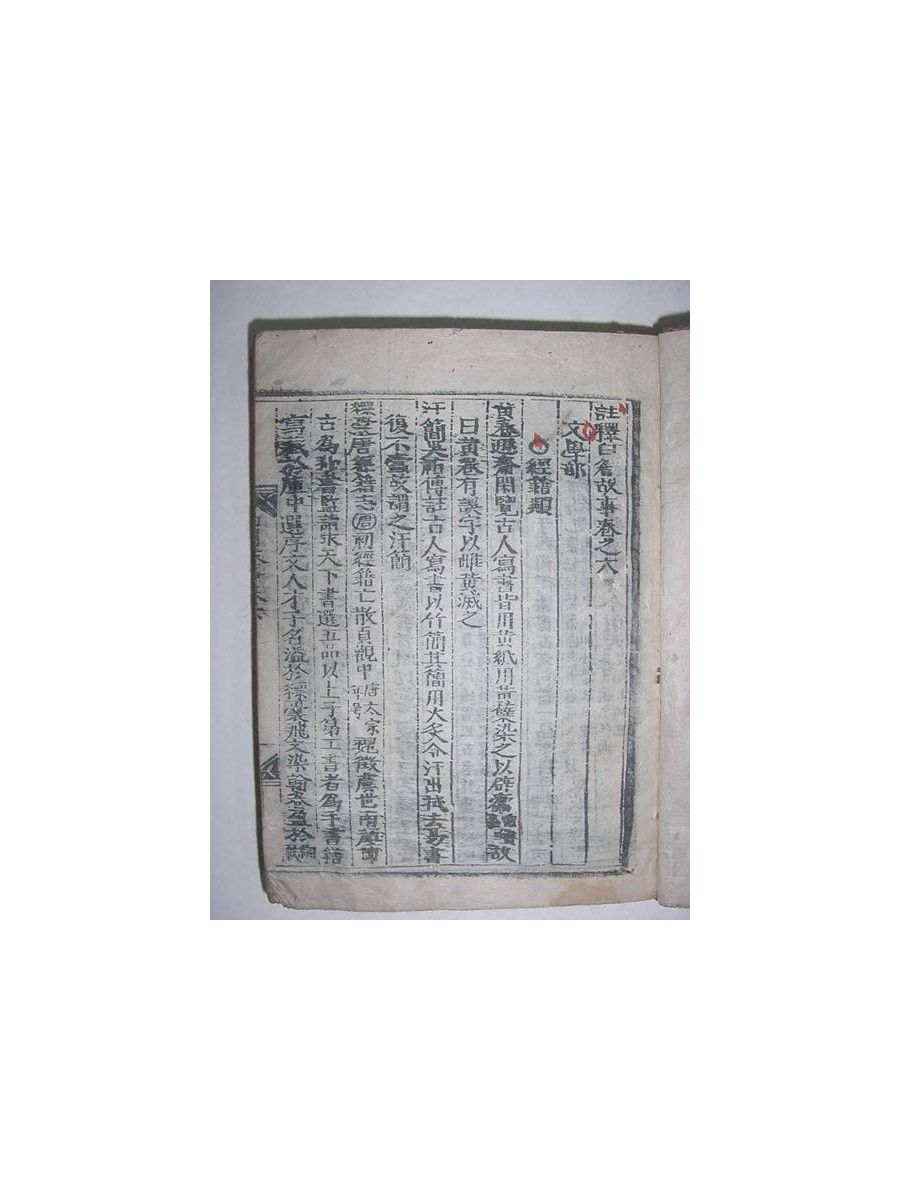 註釋白眉故事卷之六
文學部
○經籍類
黃卷遯齋閑覽古人寫書皆用黃紙用黃蘗染之以辟蠹故
曰黃卷有誤字以雌黃滅之
汗簡吳祐傳註古人寫書以竹簡其簡用火炙令汗出拭去易書
復不蠹故謂之汗簡
縹囊唐經籍志國初經籍亡散貞觀中唐太宗年号魏徵虞世南顏師
古為秘書監請求天下書選五品以上子弟工書者為手書繕
寫藏於庫中選序文人才子名溢於縹囊飛文染翰卷盈於緗帙